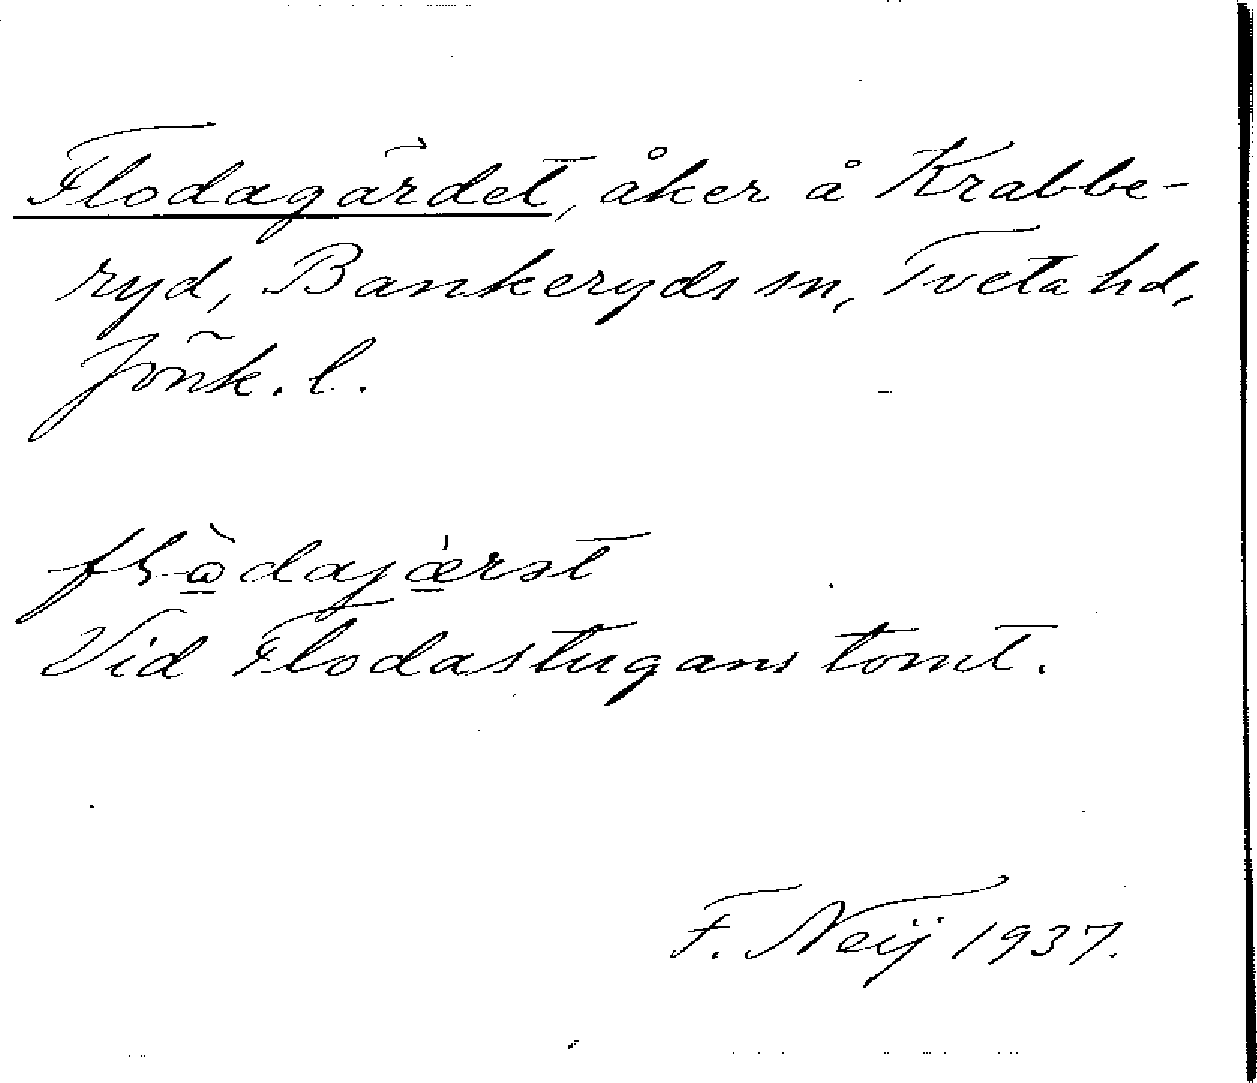 Flodagärdet, åker å Krabbe-
ryd, Bankeryds sn, Tveta hd,
Jönk. l.
Vid Flodastugans tomt.
F. Neij 1937.